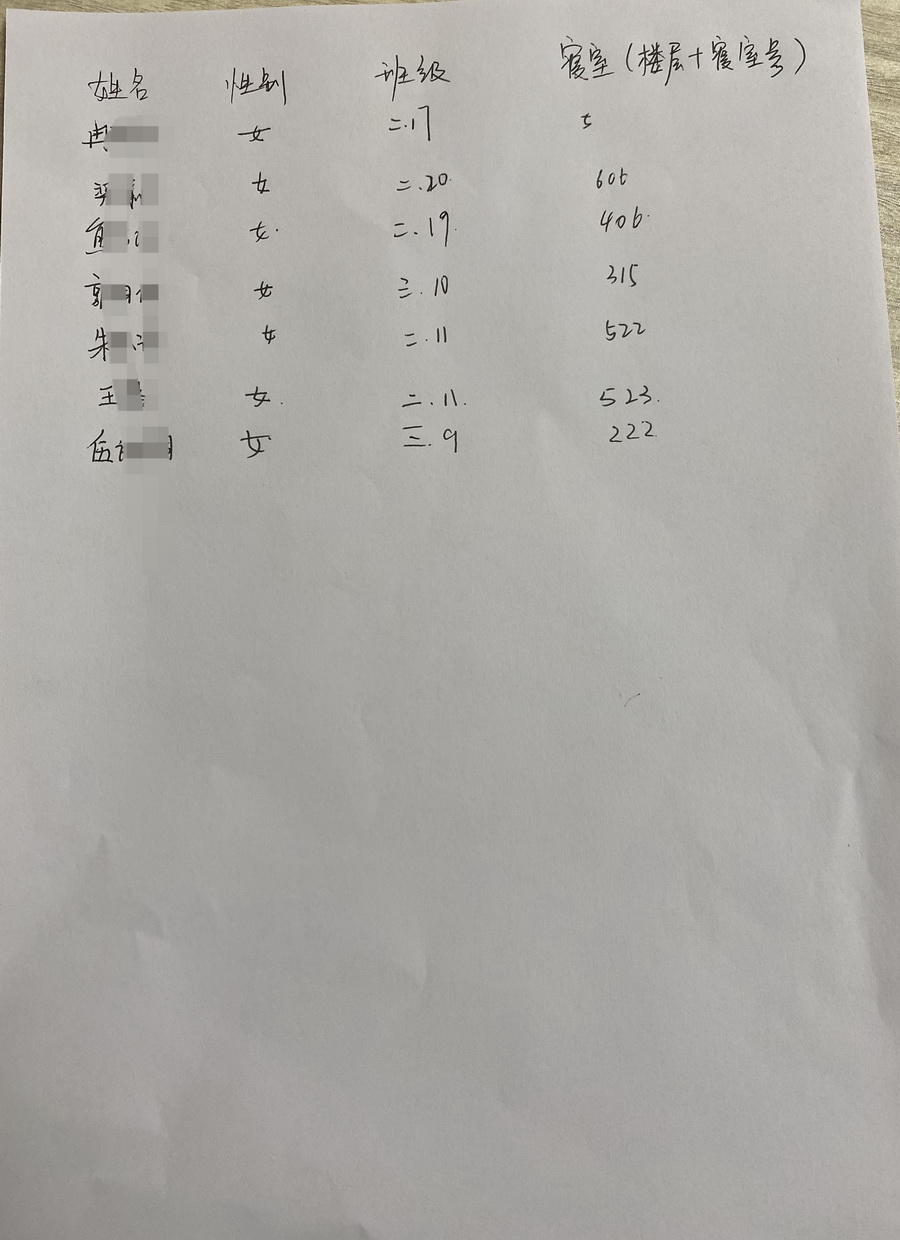 姓名 性别 班级 寝室(楼层+寝室号)
冉 女 二.17 5
女 二.20. 606
女. 二.19. 406.
郭 女 三.10 315
朱 女 二.11 522
王 女. 二.11. 523.
伍 女 三.9 222